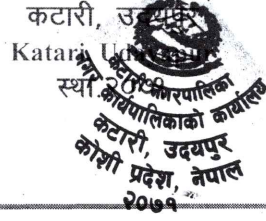 कटारी, उदयपुर
Katari, Udayapur
स्था
कटारी नगरपालिका
नगर कार्यपालिकाको कार्यालय
कटारी, उदयपुर
कोशी प्रदेश, नेपाल
२०७१